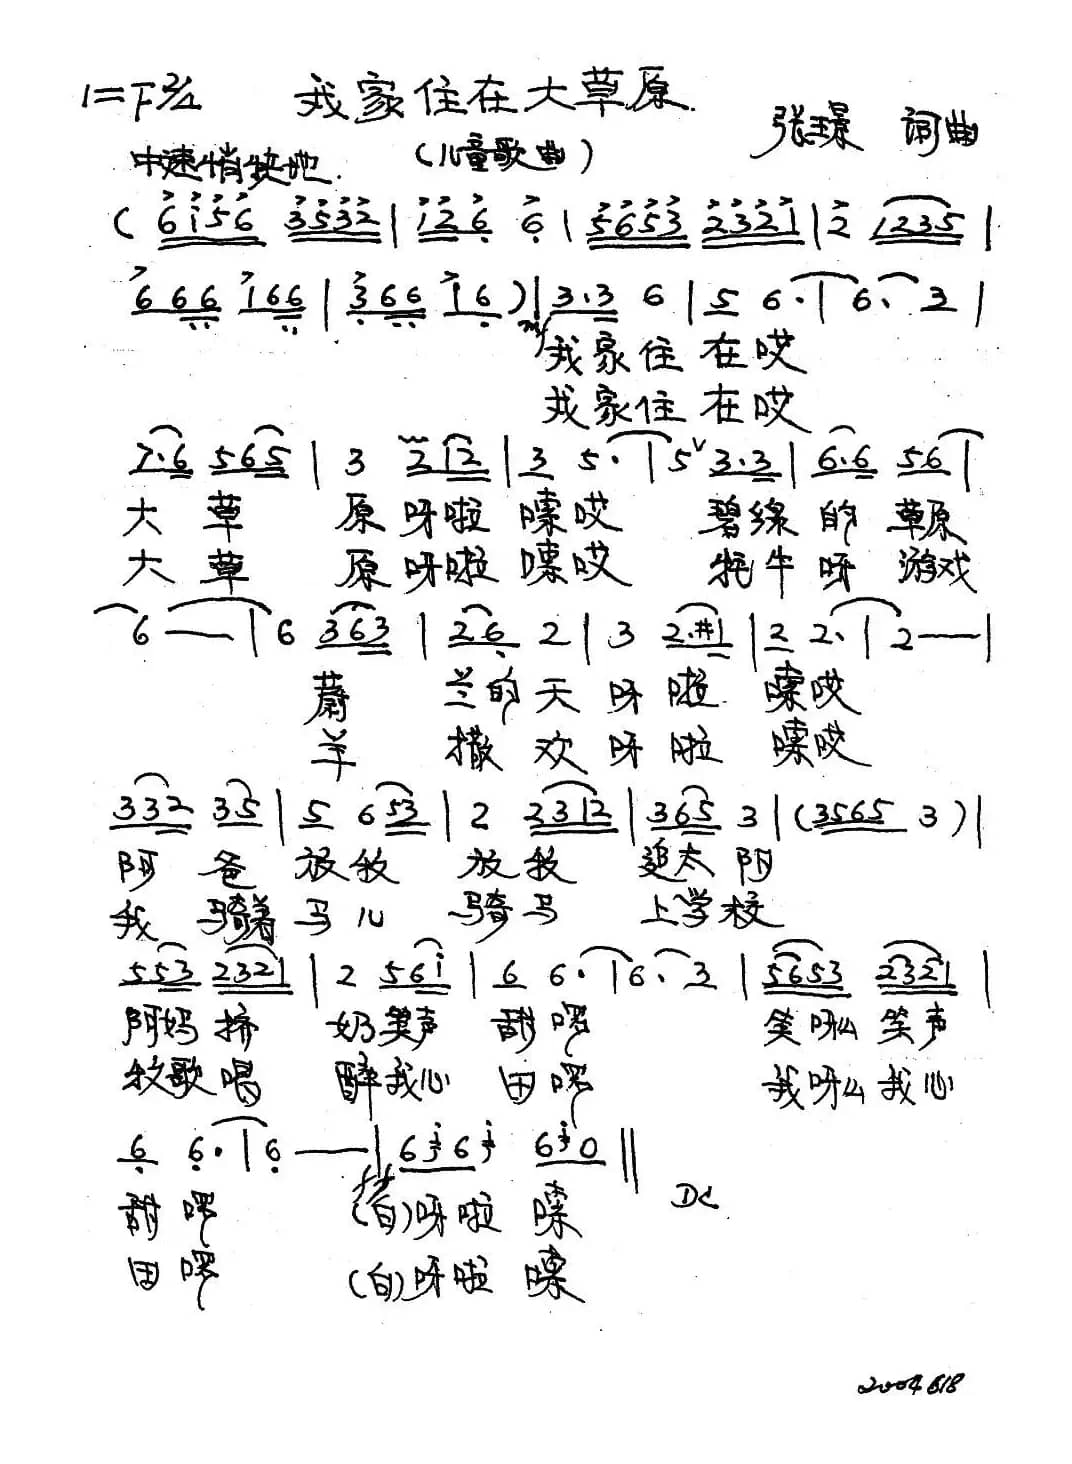 1=F 2/4 我家住在大草原
张璟 词曲
中速稍快地 (儿童歌曲)
(6i56 3532 | 126 6 | 5653 2321 | 2 1235 |
666 166 | 366 16) | 3·3 6 | 5 6· | 6· 3 |
mf 我家住 在哎
我家住 在哎
7·6 565 | 3 212 | 3 5· | 5 3·3 | 6·6 56 |
大草 原呀啦 嗦哎 碧绿的 草原
大草 原呀啦 嗦哎 牦牛呀 游戏
6 — | 6 363 | 26 2 | 3 2·#1 | 2 2· | 2 — |
蔚 兰的天 呀啦 嗦哎
羊 撒欢 呀啦 嗦哎
332 35 | 5 653 | 2 2312 | 365 3 | (3565 3) |
阿爸 放牧 放牧 追太阳
我骑着 马儿 骑马 上学校
553 2321 | 2 56i | 6 6· | 6· 3 | 5653 2321 |
阿妈挤 奶笑声 甜啰 笑呀么笑声
牧歌唱 醉我心 田啰 我呀么我心
6 6· | 6 — | 6 6 6 0 ‖
DC
甜啰 (白)呀啦 嗦
田啰 (白)呀啦 嗦
2004 618